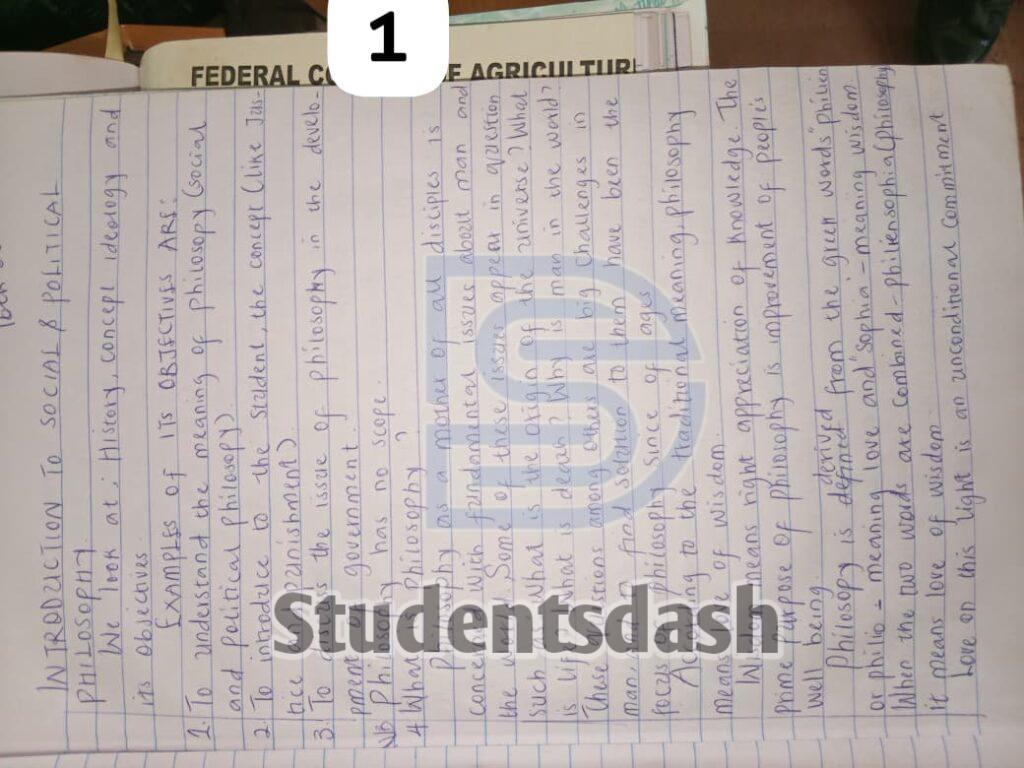 1
FEDERAL C E OF AGRICULTUR
INTRODUCTION TO SOCIAL & POLITICAL
PHILOSOPHY.
We look at; History, concept ideology and
its objectives.
EXAMPLES OF ITS OBJECTIVES ARE:
1. To understand the meaning of philosophy (social
and political philosopy)
2. To introdvice to the student, the concept (like Jus-
tice and punishment)
3. To the issue of philosophy in the develo-
pment of government.
NB Philosophy has no scope.
4 What is philosophy?
Philosophy as a mother of all disciplies is
concerned with fundamental issues about man and
the world. Some of these issues appear in question
such as What is the origin of the universe? What
is life? What is death? Why is man in the world?
These questions among others are big challenges in
man and to find solution to them have been the
focus of philosophy since of ages
According to the traditional meaning, philosophy
means love of wisdom.
Wisdom means right appreciation of knowledge. The
prime purpose of philosophy is improvement of people's
well being.
Philosophy is defined derived from the green words "philien
or philio - meaning love and "sophia" - meaning wisdom.
When the two words are combined - philiensophia (philosophy
it means love of wisdom.
Love on this light is an unconditional commitment
Studentsdash